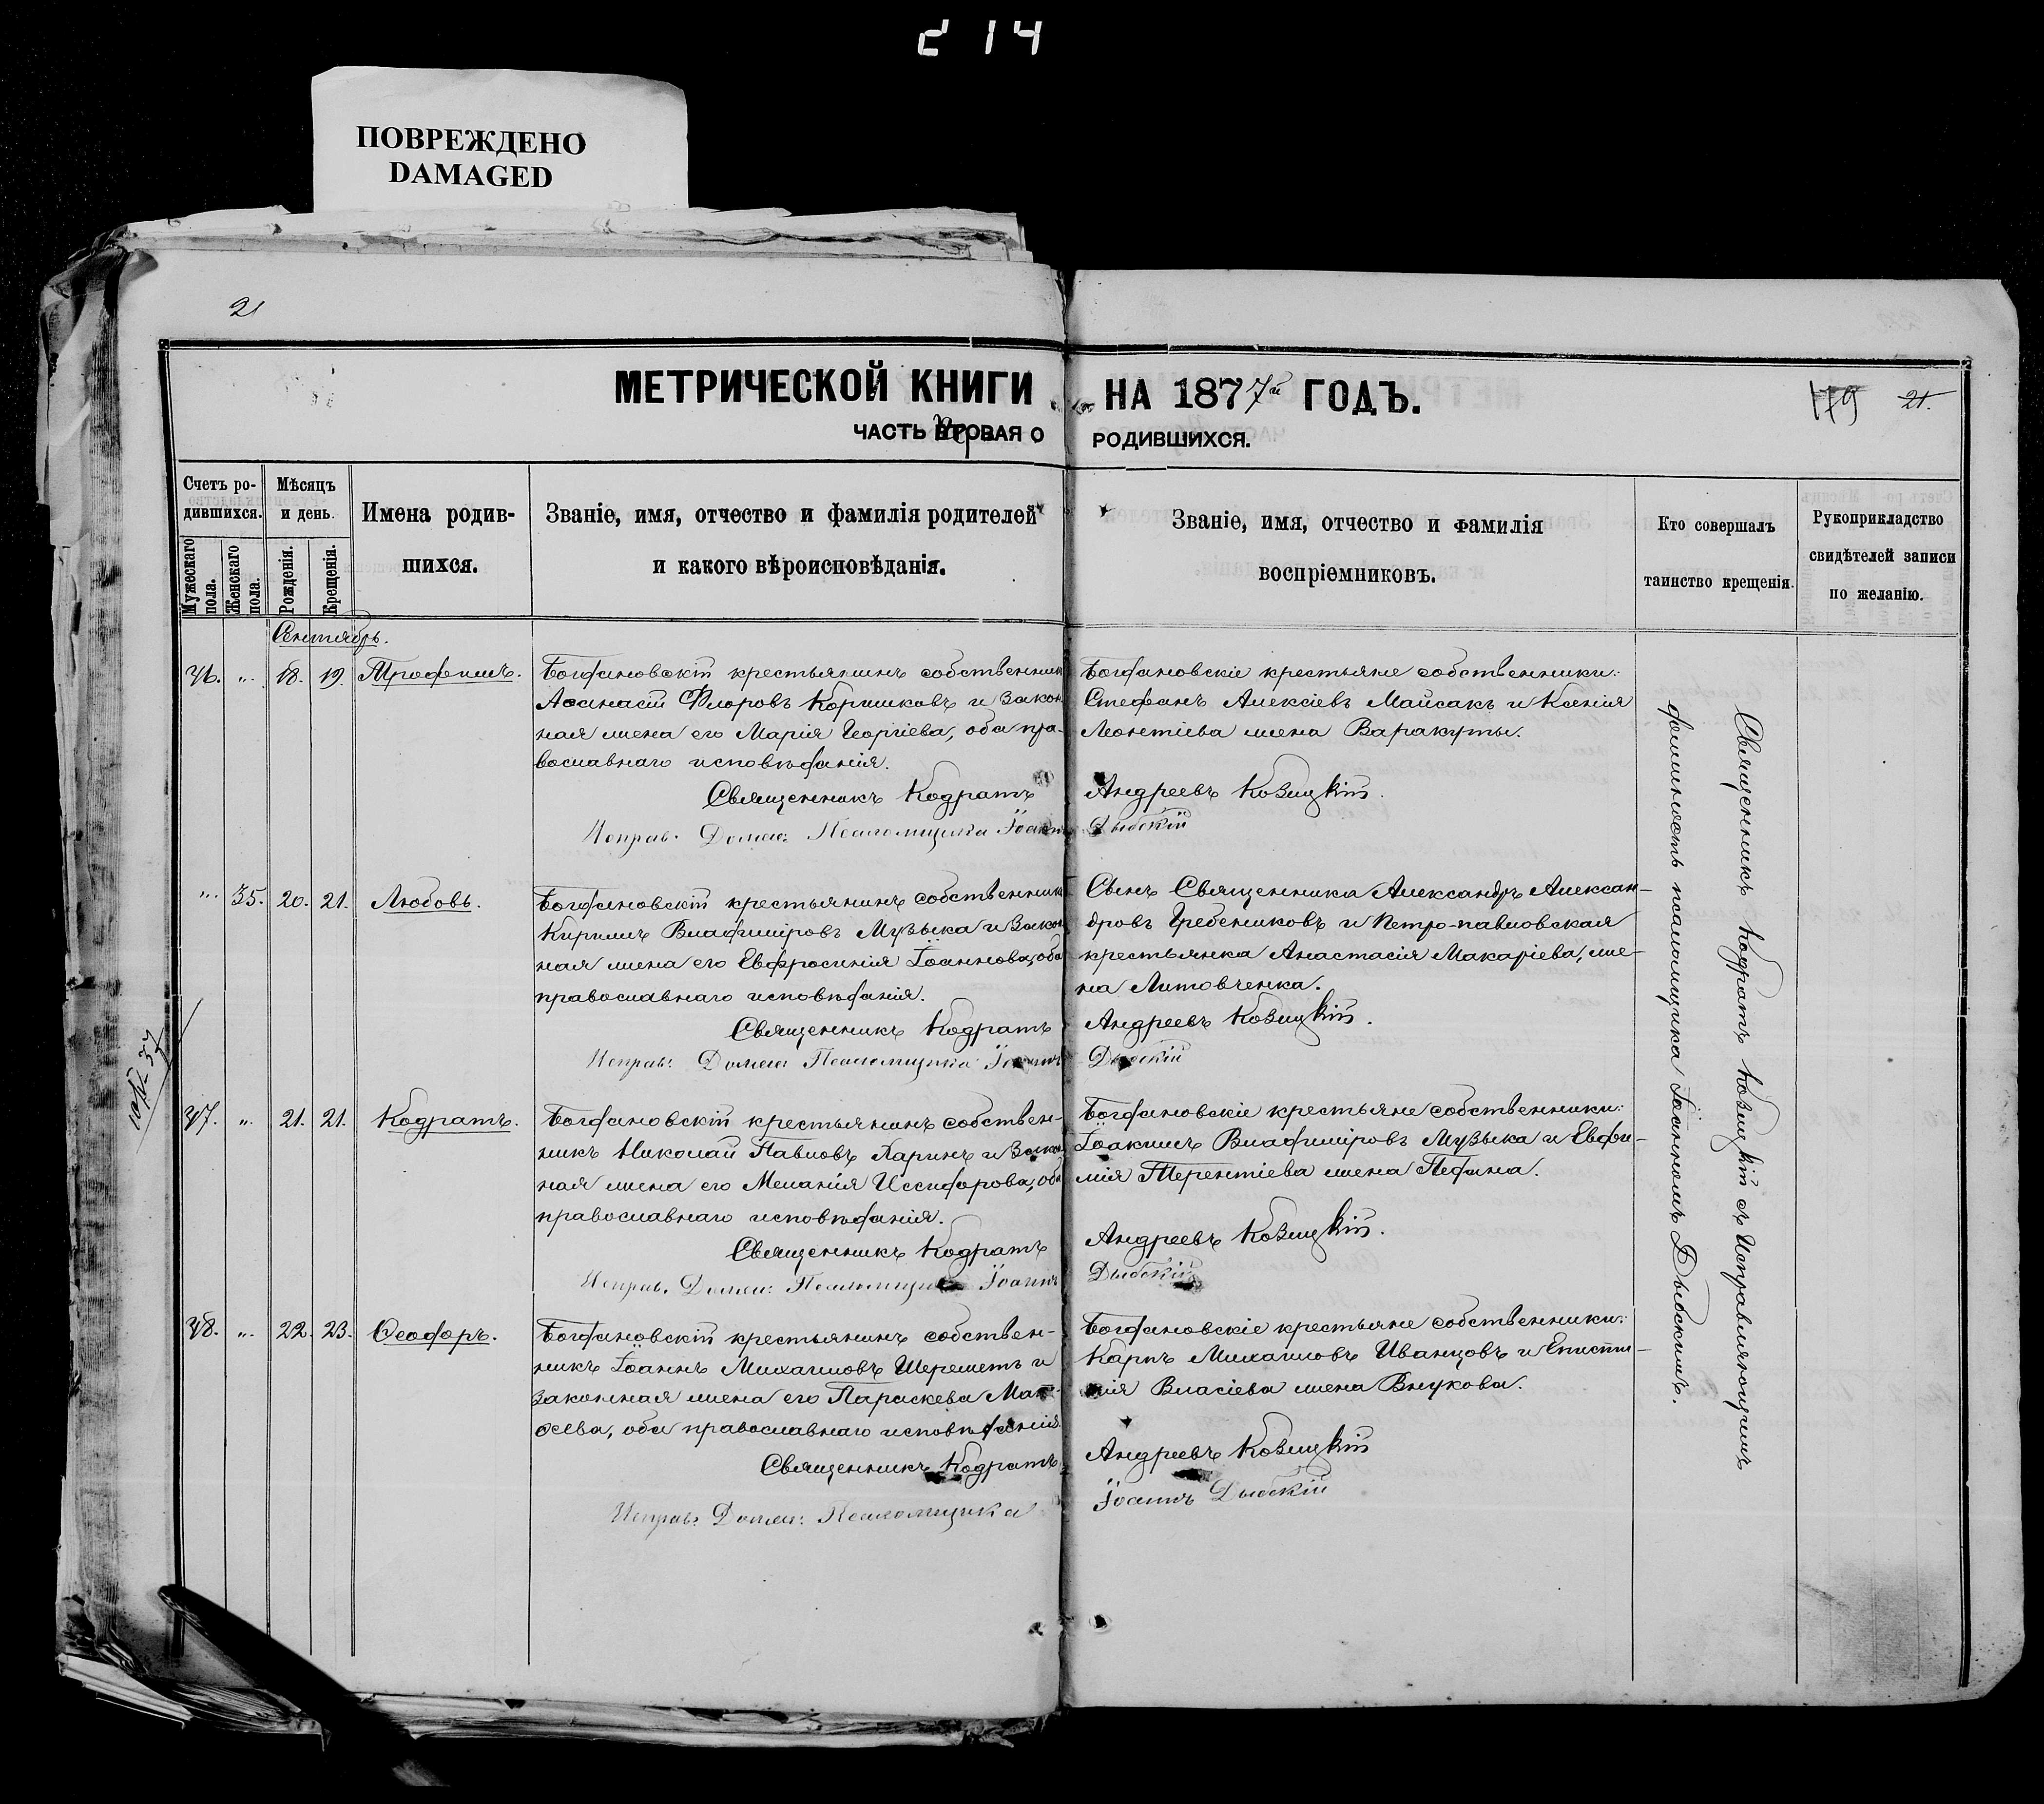 214
ПОВРЕЖДЕНО
DAMAGED
21
МЕТРИЧЕСКОЙ КНИГИ НА 1877й ГОДЪ.
179 21.
ЧАСТЬ ВТОРАЯ О РОДИВШИХСЯ.
Счетъ ро-
дившихся.
Мужескаго пола.
Женскаго пола.
Мѣсяцъ
и день.
Рожденія.
Крещенія.
Имена родив-
шихся.
Званіе, имя, отчество и фамилія родителей
и какого вѣроисповѣданія.
Званіе, имя, отчество и фамилія
воспріемниковъ.
Кто совершалъ
таинство крещенія.
Рукоприкладство
свидѣтелей записи
по желанію.
Сентябрь.
36. „ 18. 19. Трофимъ.
Богдановскій крестьянинъ собственникъ
Аѳанасій Флоровъ Коришковъ и закон
ная жена его Марія Георгіева, оба пра-
вославнаго исповѣданія.
Священникъ Кодратъ
Исправ. Должн: Псаломщика Іоаннъ
Богдановскіе крестьяне собственники:
Стефанъ Алексіевъ Майсакъ и Ксенія
Леонтіева жена Варакуты.
Андреевъ Ковицкій.
Дыбскій
„ 35. 20. 21. Любовь.
Богдановскій крестьянинъ собственникъ
Кириллъ Владиміровъ Музыка и закон
ная жена его Евфросинія Іоаннова, оба
православнаго исповѣданія.
Священникъ Кодратъ
Исправ: Должн: Псаломщика Іоаннъ
Сынъ Священника Александръ Алексан-
дровъ Гребениковъ и Петро-павловская
крестьянка Анастасія Макаріева, же-
на Литовченка.
Андреевъ Ковицкій.
Дыбскій
37. „ 21. 21. Кодратъ.
Богдановскій крестьянинъ собствен-
никъ Николай Павловъ Ларинъ и закон
ная жена его Меланія Иссифорова, оба
православнаго исповѣданія.
Священникъ Кодратъ
Исправ. Должн: Псаломщика Іоаннъ
Богдановскіе крестьяне собственники:
Іоакимъ Владиміровъ Музыка и Евфи-
мія Терентіева жена Педана.
Андреевъ Ковицкій.
Дыбскій
38. „ 22. 23. Ѳеодоръ.
Богдановскій крестьянинъ собствен-
никъ Іоаннъ Михаиловъ Шереметъ и
законная жена его Параскева Мат-
ѳеева, оба православнаго исповѣданія.
Священникъ Кодратъ
Исправ: Должн: Псаломщика
Богдановскіе крестьяне собственники:
Карпъ Михаиловъ Иванцовъ и Еписти-
мія Власіева жена Внукова.
Андреевъ Ковицкій
Іоаннъ Дыбскій
Священникъ Кодратъ Ковицкій съ Исправляющимъ
должность псаломщика Іоанномъ Дыбскимъ.